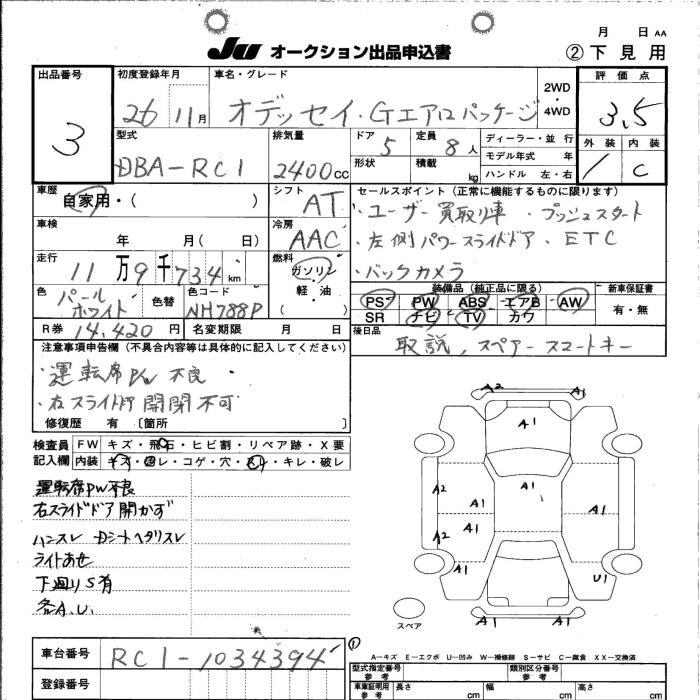 月 日 AA
JU オークション出品申込書 ②下見用
出品番号 初度登録年月 車名・グレード 2WD・4WD 評価点
3 26 11月 オデッセイ・Gエアロパッケージ 3.5
型式 排気量 ドア 5 定員 8人 ディーラー・並行 外装 内装
DBA-RC1 2400cc 形状 積載 kg モデル年式 年 C
ハンドル 左・右
車歴 自家用・( ) シフト AT セールスポイント(正常に機能するものに限ります)
・ユーザー買取り車 ・プッシュスタート
車検 年 月(日) 冷房 AAC ・左側パワースライドドア、ETC
走行 11万9千734km 燃料 ガソリン・軽・油 ( ) ・バックカメラ
色 パールホワイト 色替 色コード NH788P
装備品(純正品に限る) 新車保証書
PS PW ABS エアB AW 有・無
SR ナビ TV カワ
R券 14,420円 名変期限 月 日 後日品 取説、スペアースマートキー
注意事項申告欄(不具合内容等は具体的に記入してください)
・運転席P/W 不良
・右スライドドア開閉不可
修復歴 有 〔箇所 〕
検査員記入欄 FW キズ・飛石・ヒビ割・リペア跡・X要
内装 キズ・凹レ・コゲ・穴・ ・キレ・破レ
運転席PW不良
右スライドドア開かず
ハンスレ Dシートヘタリスレ
ライトあせ
下廻りS有
各A.U.
A2 A1
A1
A2 A1 A1 A1
A2 A1
A1 U1
A1 A1
スペア
①
A-キズ E-エクボ U-凹み W-補修跡 S-サビ C-腐食 XX-交換済
車台番号 RC1-1034394
登録番号
型式指定番号 参考 類別区分番号 参考
車庫証明用 参考 長さ cm 幅 cm 高さ cm